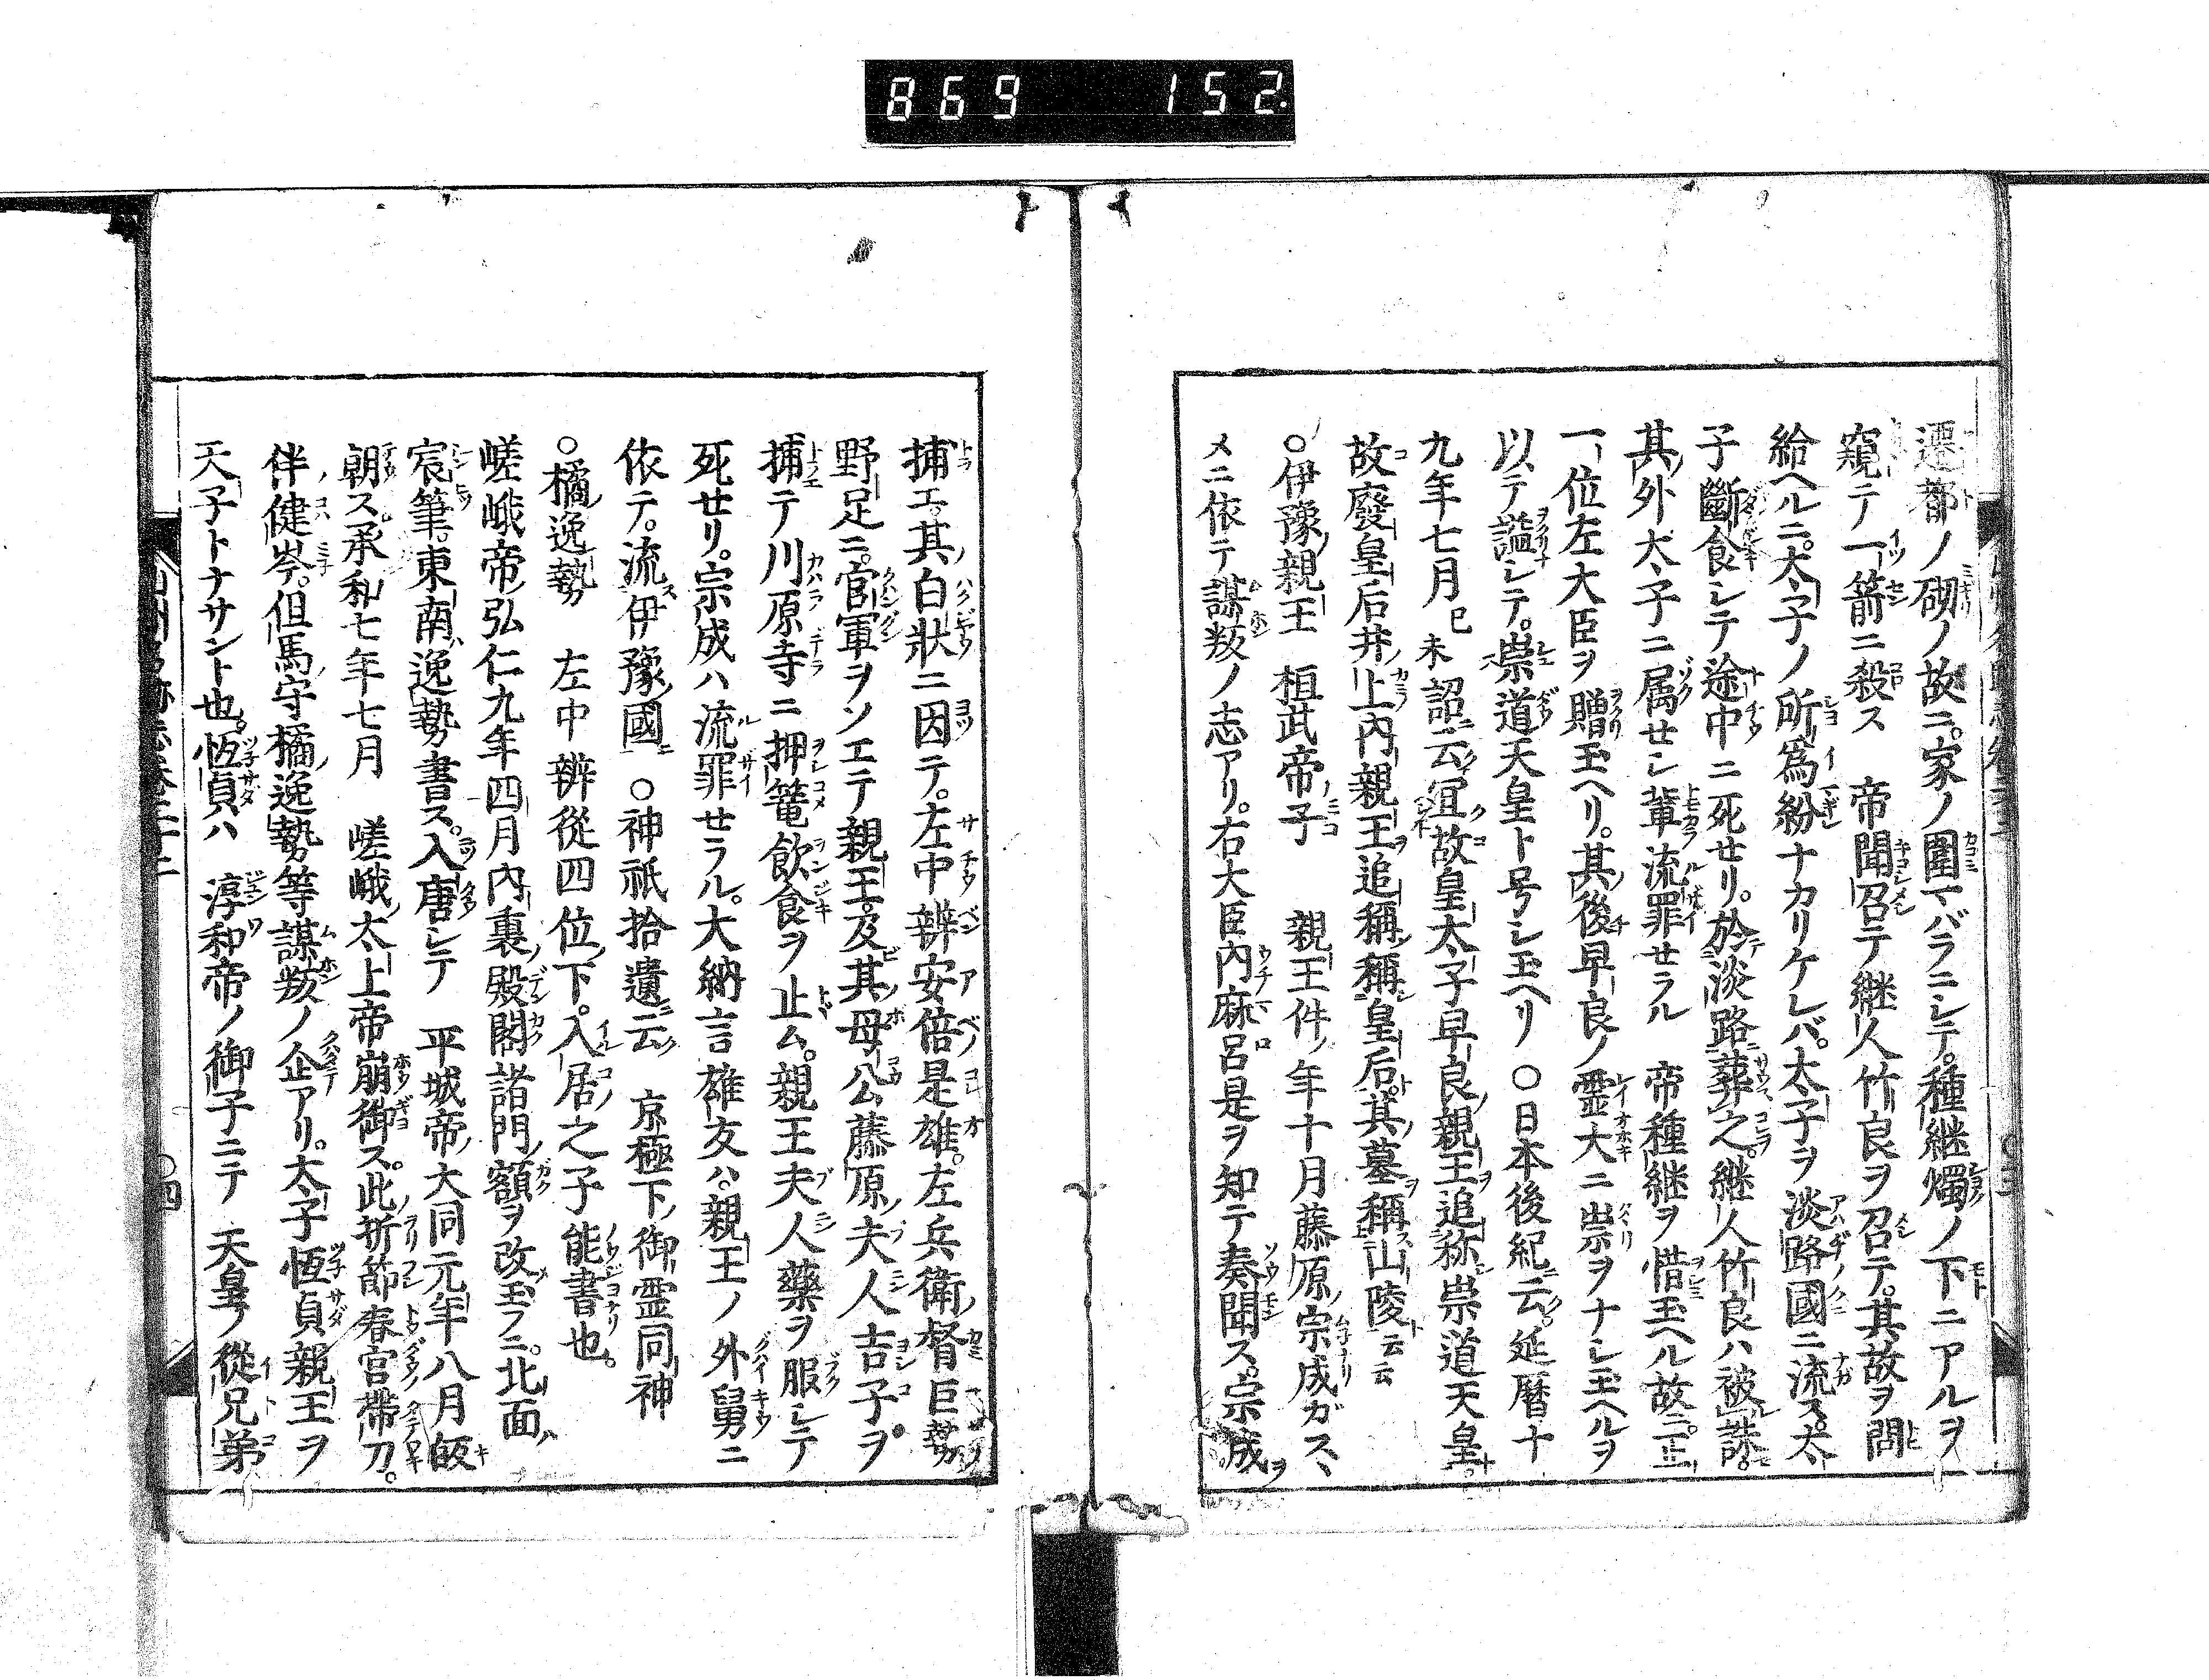 869 152
遷都ノ砌ノ故ニ。家ノ圍マバラニシテ。種継燭ノ下ニアルヲ
窺テ一箭ニ殺ス 帝聞召テ継人竹良ヲ召テ。其故ヲ問
給ヘルニ。太子ノ所爲紛ナカリケレバ。太子ヲ淡路國ニ流ス。太
子斷食シテ途中ニ死セリ。於淡路葬之。継人竹良ハ被誅。
其外太子ニ属セシ輩流罪セラル 帝種継ヲ惜玉ヘル故ニ。正
一位左大臣ヲ贈玉ヘリ。其後早良ノ霊大ニ祟ヲナシ玉ヘルヲ
以テ謚シテ。崇道天皇ト号シ玉ヘリ ○日本後紀云。延暦十
九年七月己未詔云冝故皇太子早良親王追称崇道天皇。
故廢皇后井上內親王追稱稱皇后。其墓稱山陵云云
○伊豫親王 桓武帝子 親王件ノ年十月藤原宗成ガスヽ
メニ依テ謀叛ノ志アリ。右大臣內麻呂是ヲ知テ奏聞ス。宗成
捕エ。其白狀ニ因テ。左中辨安倍是雄。左兵衛督巨勢
野足ニ。官軍ヲソエテ親王及其母公藤原夫人吉子ヲ
捕テ川原寺ニ押篭飲食ヲ止ム。親王夫人藥ヲ服シテ
死セリ。宗成ハ流罪セラル。大納言雄友ハ。親王ノ外舅ニ
依テ。流伊豫國 ○神祇拾遺云 京極下御霊同神
○橘逸勢 左中辨從四位下。入居之子能書也。
嵯峨帝弘仁九年四月內裏殿閣諸門額ヲ改玉フニ。北面ハ
宸筆。東南ハ逸勢書ス。入唐シテ 平城帝大同元年八月皈
朝ス承和七年七月 嵯峨太上帝崩御ス。此折節春宮帶刀。
伴健岑。但馬守橘逸勢等謀叛ノ企アリ。太子恆貞親王ヲ
天子トナサント也。恆貞ハ 淳和帝ノ御子ニテ 天皇ノ從兄弟
○四